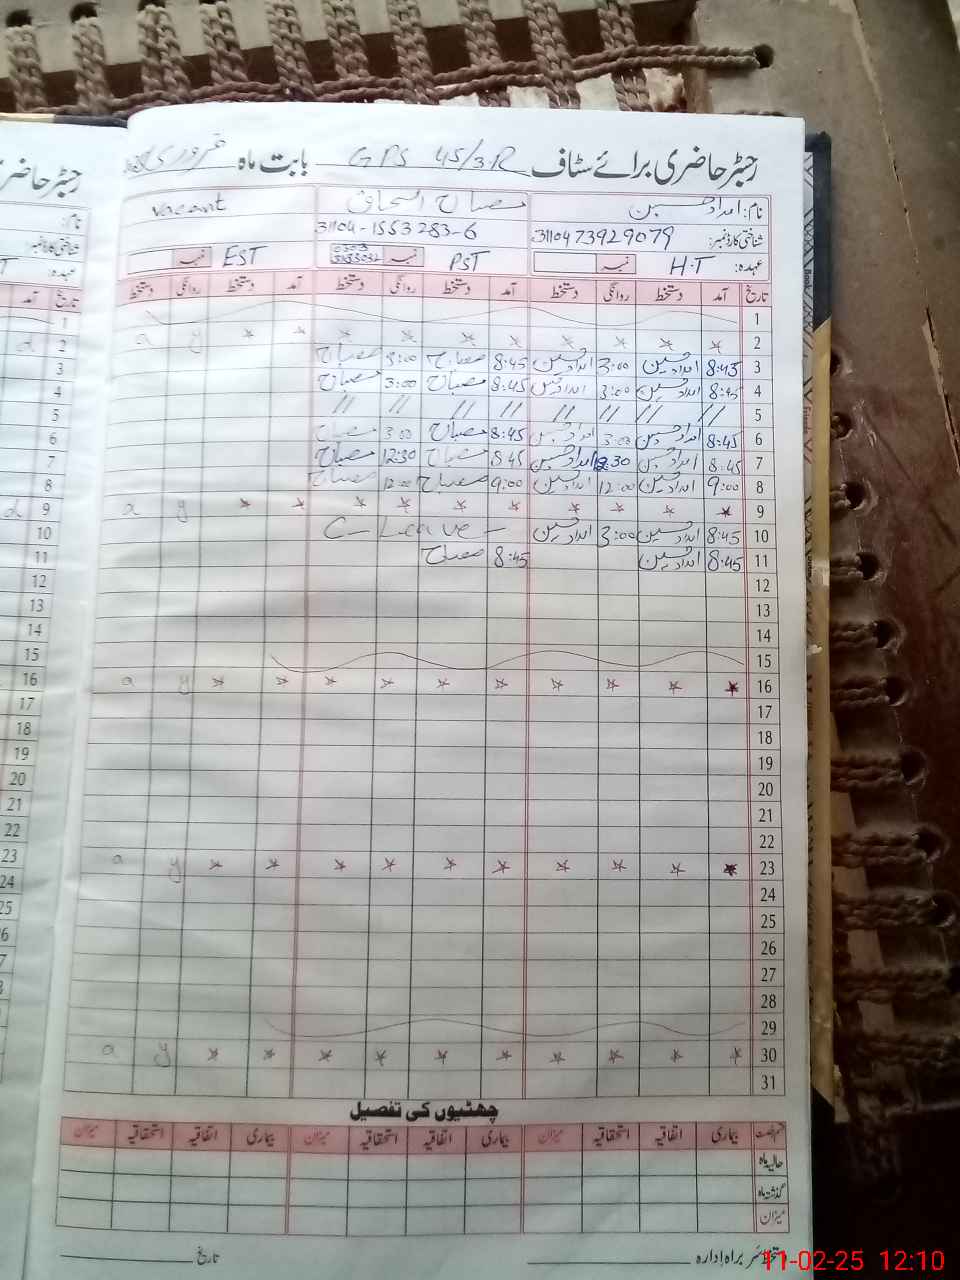 رجسٹر حاضری برائے سٹاف GPS 45/3R بابت ماہ فروری
نام: امداد حسین مصباح اسحاق vacant
شناختی کارڈ نمبر: 3110473929079 31104-1553283-6
عہدہ: H.T نمبر PST نمبر EST نمبر
تاریخ آمد دستخط روانگی دستخط آمد دستخط روانگی دستخط آمد دستخط روانگی دستخط
1
2 * * * * * * * * * * y a
3 8:45 امداد حسین 3:00 امداد حسین 8:45 مصباح 3:00 مصباح
4 8:45 امداد حسین 3:00 امداد حسین 8:45 مصباح 3:00 مصباح
5 // // // // // // // //
6 8:45 امداد حسین 3:00 امداد حسین 8:45 مصباح 3:00 مصباح
7 8:45 امداد حسین 12:30 امداد حسین 8:45 مصباح 12:30 مصباح
8 9:00 امداد حسین 12:00 امداد حسین 9:00 مصباح 12:00 مصباح
9 * * * * * * * * * * y a
10 8:45 امداد حسین 3:00 امداد حسین C-Leave-
11 8:45 امداد حسین 8:45 مصباح
12
13
14
15
16 * * * * * * * * * * y a
17
18
19
20
21
22
23 * * * * * * * * * * y a
24
25
26
27
28
29
30 * * * * * * * * * * y a
31
چھٹیوں کی تفصیل
قسم رخصت بیماری اتفاقیہ استحقاقیہ میزان بیماری اتفاقیہ استحقاقیہ میزان بیماری اتفاقیہ استحقاقیہ میزان
حالیہ ماہ
گذشتہ ماہ
میزان
دستخط سربراہ ادارہ تاریخ
11-02-25 12:10